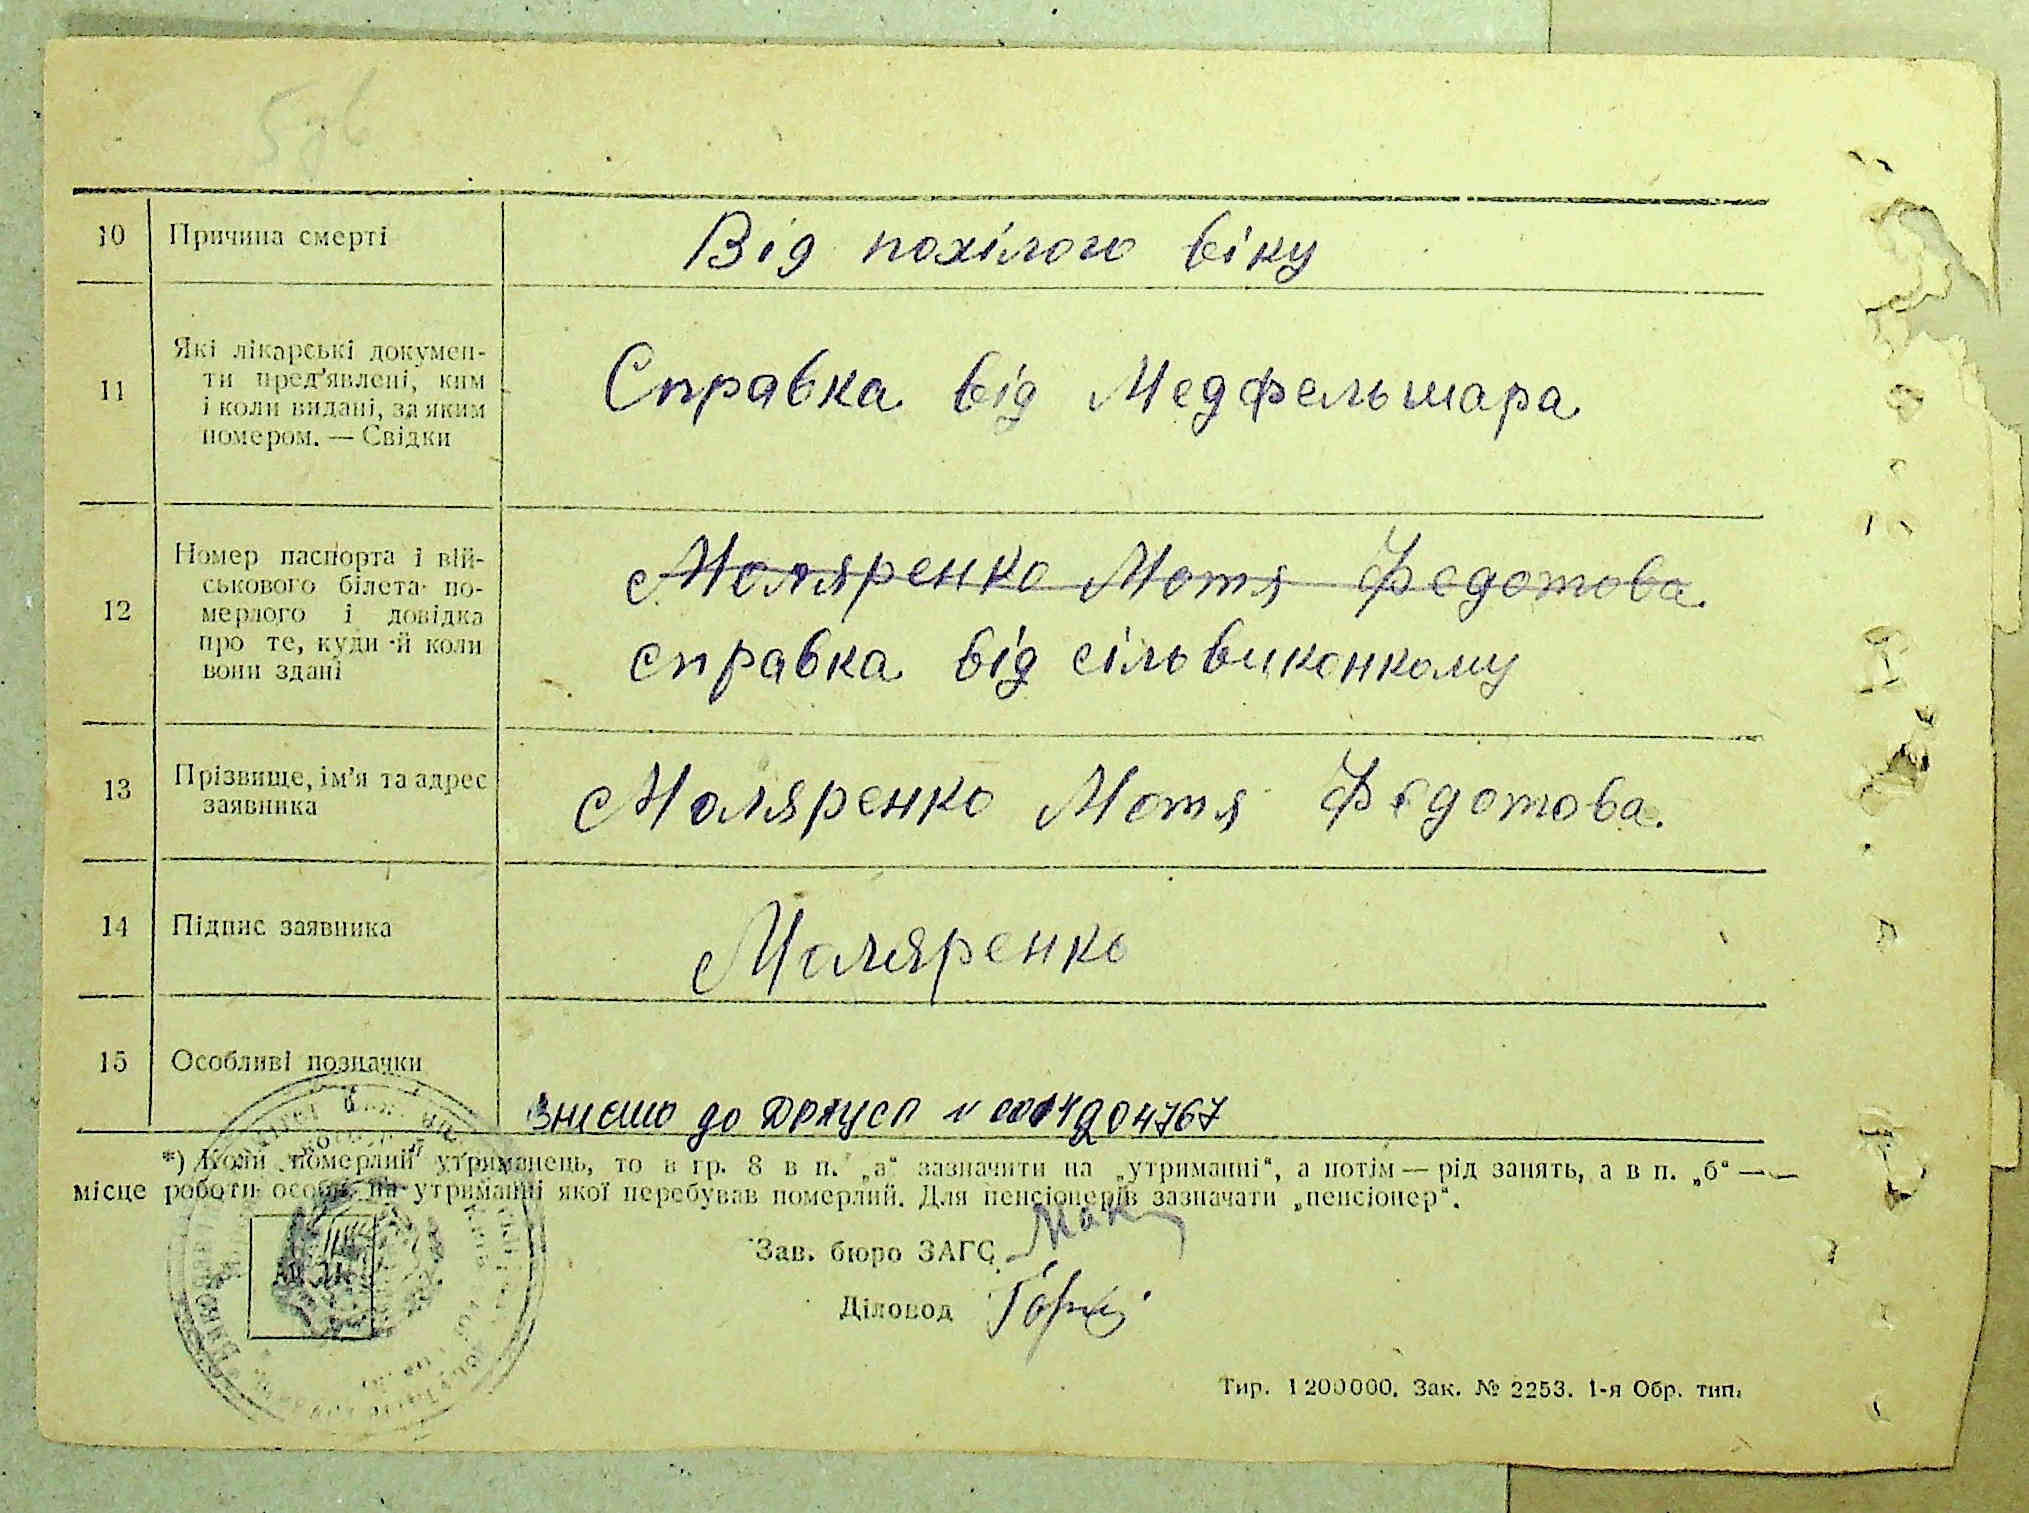 10 Причина смерті Від похілого віку
Які лікарські докумен-
ти пред'явлені, ким
11 і коли видані, за яким
номером. — Свідки
Справка від Медфельшара
Номер паспорта і вій-
ськового білета по-
12 мерлого і довідка
про те, куди й коли
вони здані
Моляренко Мотя Федотова.
справка від сільвиконкому
13 Прізвище, ім'я та адрес
заявника
Моляренко Мотя Федотова.
14 Підпис заявника Моляренко
15 Особливі позначки
до
*) Коли померлий утриманець, то в гр. 8 в п. „а" зазначити на „утриманні", а потім — рід занять, а в п. „б" —
місце роботи особи, на утриманні якої перебував померлий. Для пенсіонерів зазначати „пенсіонер".
Зав. бюро ЗАГС
Діловод
Тир. 1200000. Зак. № 2253. 1-я Обр. тип.